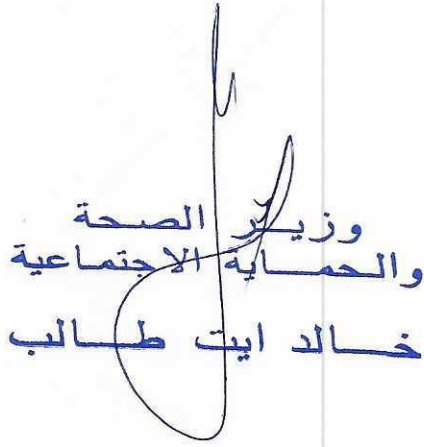 وزير الصحة
والحماية الاجتماعية
خالد ايت طالب